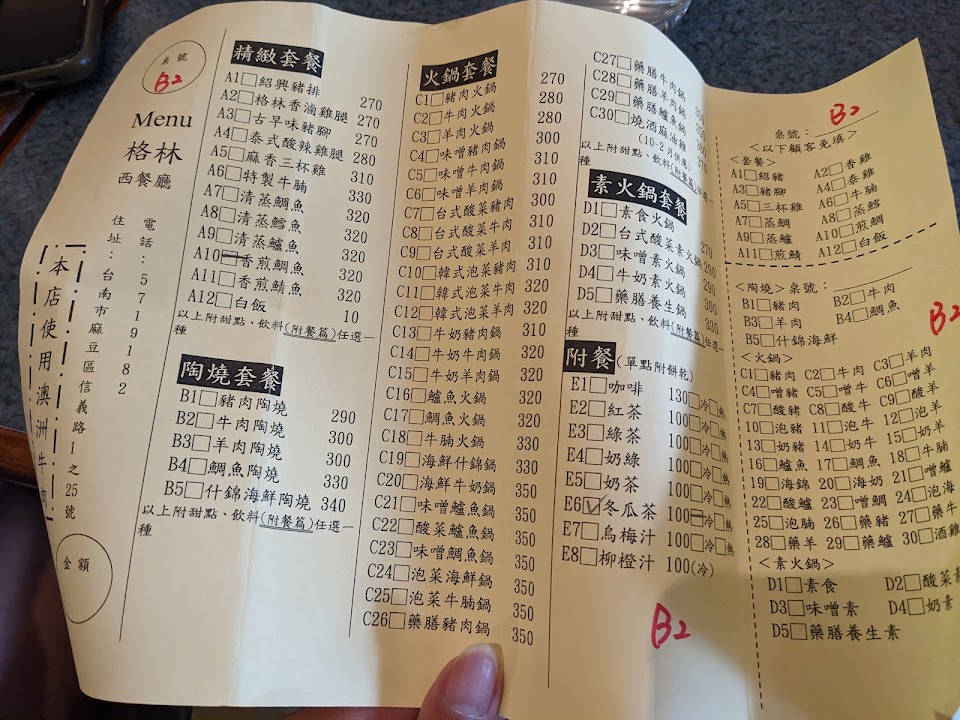 桌號
B2
Menu
格林
西餐廳
電話:5719182
住址:台南市麻豆區信義路1之25號
本店使用澳洲牛
金額
精緻套餐
A1□紹興豬排 270
A2□格林香滷雞腿 270
A3□古早味豬腳 270
A4□泰式酸辣雞腿 280
A5□麻香三杯雞 310
A6□特製牛腩 330
A7□清蒸鯛魚 320
A8□清蒸鱈魚 320
A9□清蒸鱸魚 320
A10□香煎鯛魚 320
A11□香煎鯖魚 320
A12□白飯 10
以上附甜點、飲料(附餐篇)任選一
種
陶燒套餐
B1□豬肉陶燒 290
B2□牛肉陶燒 300
B3□羊肉陶燒 300
B4□鯛魚陶燒 330
B5□什錦海鮮陶燒 340
以上附甜點、飲料(附餐篇)任選一
種
火鍋套餐
C1□豬肉火鍋 270
C2□牛肉火鍋 280
C3□羊肉火鍋 280
C4□味噌豬肉鍋 300
C5□味噌牛肉鍋 310
C6□味噌羊肉鍋 310
C7□台式酸菜豬肉 300
C8□台式酸菜牛肉 310
C9□台式酸菜羊肉 310
C10□韓式泡菜豬肉 310
C11□韓式泡菜牛肉 320
C12□韓式泡菜羊肉 320
C13□牛奶豬肉鍋 310
C14□牛奶牛肉鍋 320
C15□牛奶羊肉鍋 320
C16□鱸魚火鍋 320
C17□鯛魚火鍋 320
C18□牛腩火鍋 330
C19□海鮮什錦鍋 330
C20□海鮮牛奶鍋 350
C21□味噌鱸魚鍋 350
C22□酸菜鱸魚鍋 350
C23□味噌鯛魚鍋 350
C24□泡菜海鮮鍋 350
C25□泡菜牛腩鍋 350
C26□藥膳豬肉鍋 350
C27□藥膳牛肉鍋
C28□藥膳羊肉鍋
C29□藥膳鱸魚鍋
C30□燒酒麻油雞
(10-2月供應)
以上附甜點、飲料(附餐篇)任選一
種
素火鍋套餐
D1□素食火鍋 270
D2□台式酸菜素火鍋 290
D3□味噌素火鍋 290
D4□牛奶素火鍋 300
D5□藥膳養生鍋 330
以上附甜點、飲料(附餐篇)任選一
種
附餐(單點附餅乾)
E1□咖啡 130□冷□熱
E2□紅茶 100□冷□熱
E3□綠茶 100□冷□熱
E4□奶綠 100□冷□熱
E5□奶茶 100□冷□熱
E6☑冬瓜茶 100□冷□熱
E7□烏梅汁 100□冷□熱
E8□柳橙汁 100(冷)
B2
B2
桌號:
<以下顧客免填>
<套餐>
A1□紹豬 A2□香雞
A3□豬腳 A4□泰雞
A5□三杯雞 A6□牛腩
A7□蒸鯛 A8□蒸鱈
A9□蒸鱸 A10□煎鯛
A11□煎鯖 A12□白飯
<陶燒>桌號:
B1□豬肉 B2□牛肉
B3□羊肉 B4□鯛魚
B5□什錦海鮮
B2
<火鍋>
C1□豬肉 C2□牛肉 C3□羊肉
C4□噌豬 C5□噌牛 C6□噌羊
C7□酸豬 C8□酸牛 C9□酸羊
10□泡豬 11□泡牛 12□泡羊
13□奶豬 14□奶牛 15□奶羊
16□鱸魚 17□鯛魚 18□牛腩
19□海錦 20□海奶 21□噌鱸
22□酸鱸 23□噌鯛 24□泡海
25□泡腩 26□藥豬 27□藥牛
28□藥羊 29□藥鱸 30□酒雞
<素火鍋>
D1□素食 D2□酸菜素
D3□味噌素 D4□奶素
D5□藥膳養生素